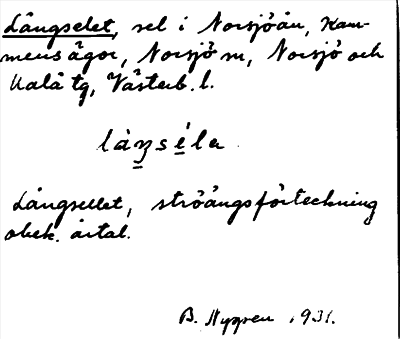 Långselet, sel i Norsjöån, Kam-
mensägor, Norsjö sn, Norsjö och
Malå tg, Västerb. l.
làŋséla
Långsellet, ströängsförteckning
obek. årtal.
B. Nygren 1931.